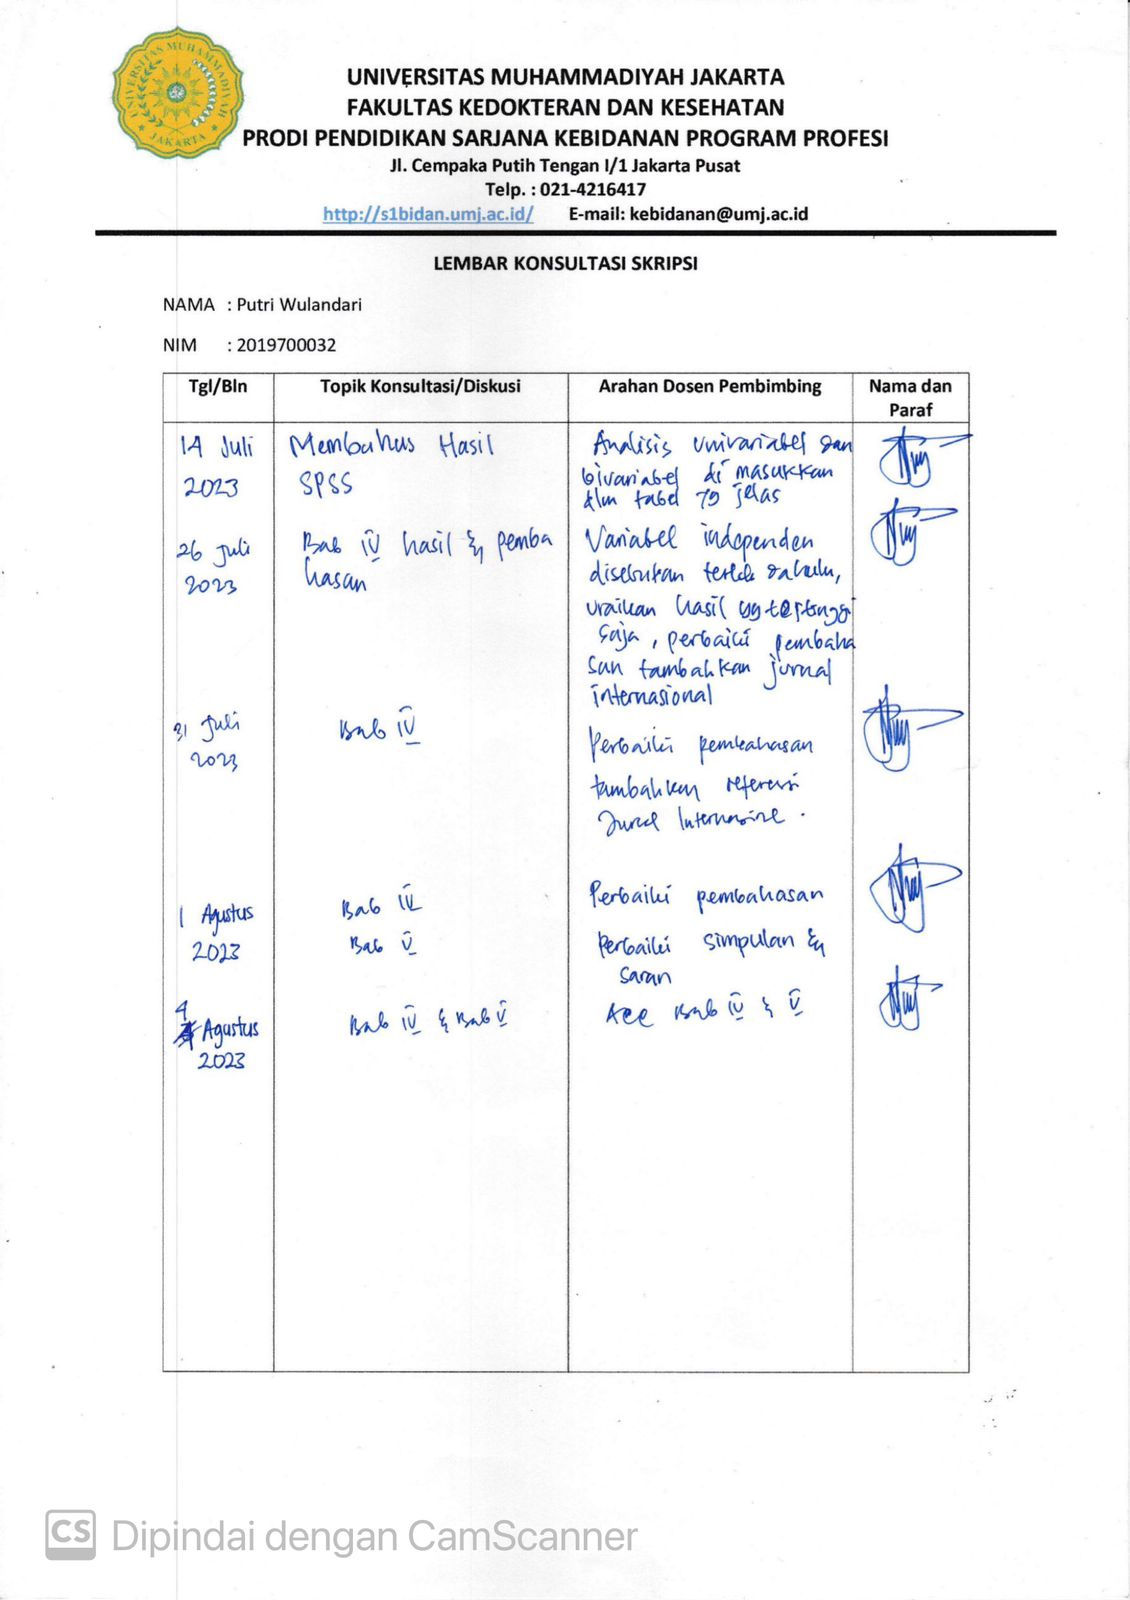 UNIVERSITAS MUHAMMADIYAH JAKARTA
FAKULTAS KEDOKTERAN DAN KESEHATAN
PRODI PENDIDIKAN SARJANA KEBIDANAN PROGRAM PROFESI
Jl. Cempaka Putih Tengan I/1 Jakarta Pusat
Telp. : 021-4216417
http://s1bidan.umj.ac.id/ E-mail: kebidanan@umj.ac.id
UNIVERSITAS MUHAMMADIYAH
JAKARTA
LEMBAR KONSULTASI SKRIPSI
NAMA : Putri Wulandari
NIM : 2019700032
Tgl/Bln Topik Konsultasi/Diskusi Arahan Dosen Pembimbing Nama dan
Paraf
14 Juli Membahas Hasil Analisis univariabel dan
2023 SPSS bivariabel di masukkan
dlm tabel yg jelas
26 Juli Bab IV hasil & pemba Variabel independen
2023 hasan disebutkan terlebih dahulu,
uraikan hasil yg tertinggi
saja, perbaiki pembaha
san tambahkan jurnal
internasional
31 Juli Bab IV Perbaiki pembahasan
2023 tambahkan referensi
Jurnal Internasional.
1 Agustus Bab IV Perbaiki pembahasan
2023 Bab V Perbaiki simpulan &
saran
4 Agustus Bab IV & Bab V Acc Bab IV & V
2023
CS Dipindai dengan CamScanner